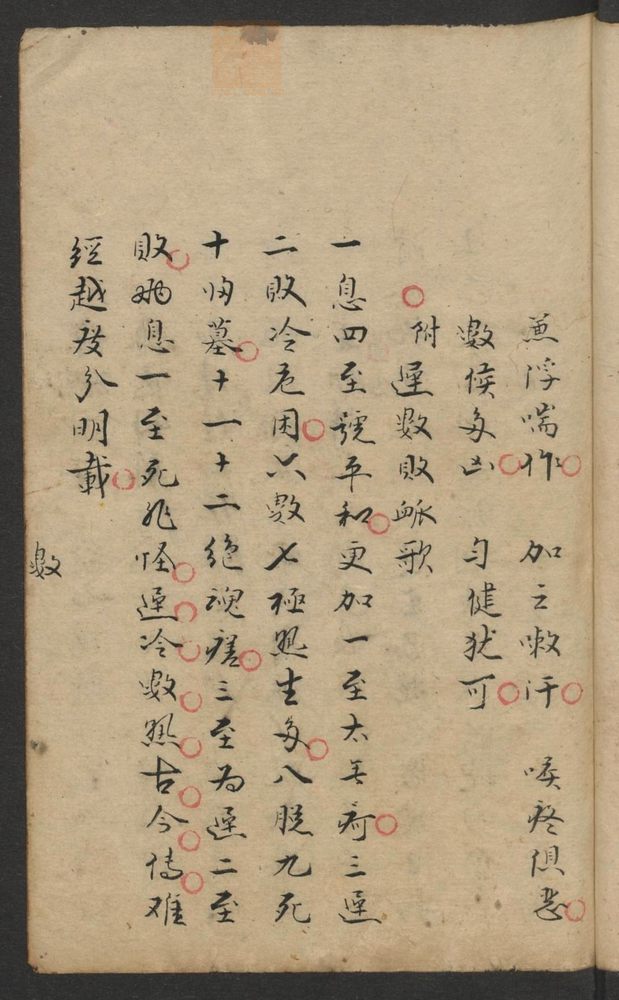 兼浮喘作　加之嗽汗　喉疼俱恶
數候多凶　匀健犹可
附遲數敗脈歌
一息四至號平和更加一至太無疴三遲
二敗冷危困六數七極熱生多八脫九死
十歸墓十一十二絶魂瘥三至为遲二至
敗兩息一至死非怪遲冷數熱古今傳难
經越度分明載
數